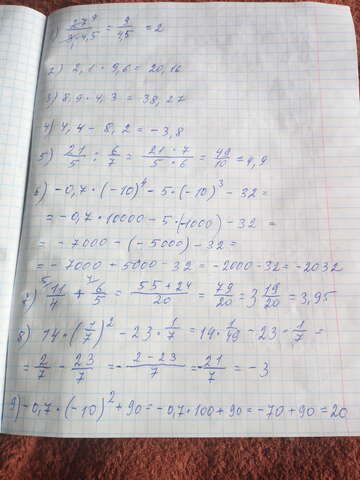 1) 27⁹/3₁·4,5 = 9/4,5 = 2
2) 2,1 · 9,6 = 20,16
3) 8,9 · 4,3 = 38,27
4) 4,4 - 8,2 = -3,8
5) 21/5 : 6/7 = 21·7/5·6 = 49/10 = 4,9
6) -0,7 · (-10)⁴ - 5 · (-10)³ - 32 =
= -0,7 · 10000 - 5 · (-1000) - 32 =
= -7000 - (-5000) - 32 =
= -7000 + 5000 - 32 = -2000 - 32 = -2032
7) ⁵⁾11/4 + ⁴⁾6/5 = 55+24/20 = 79/20 = 3 19/20 = 3,95
8) 14 · (1/7)² - 23 · 1/7 = 14 · 1/49 - 23 · 1/7 =
= 2/7 - 23/7 = - 2-23/7 = -21/7 = -3
9) -0,7 · (-10)² + 90 = -0,7 · 100 + 90 = -70 + 90 = 20